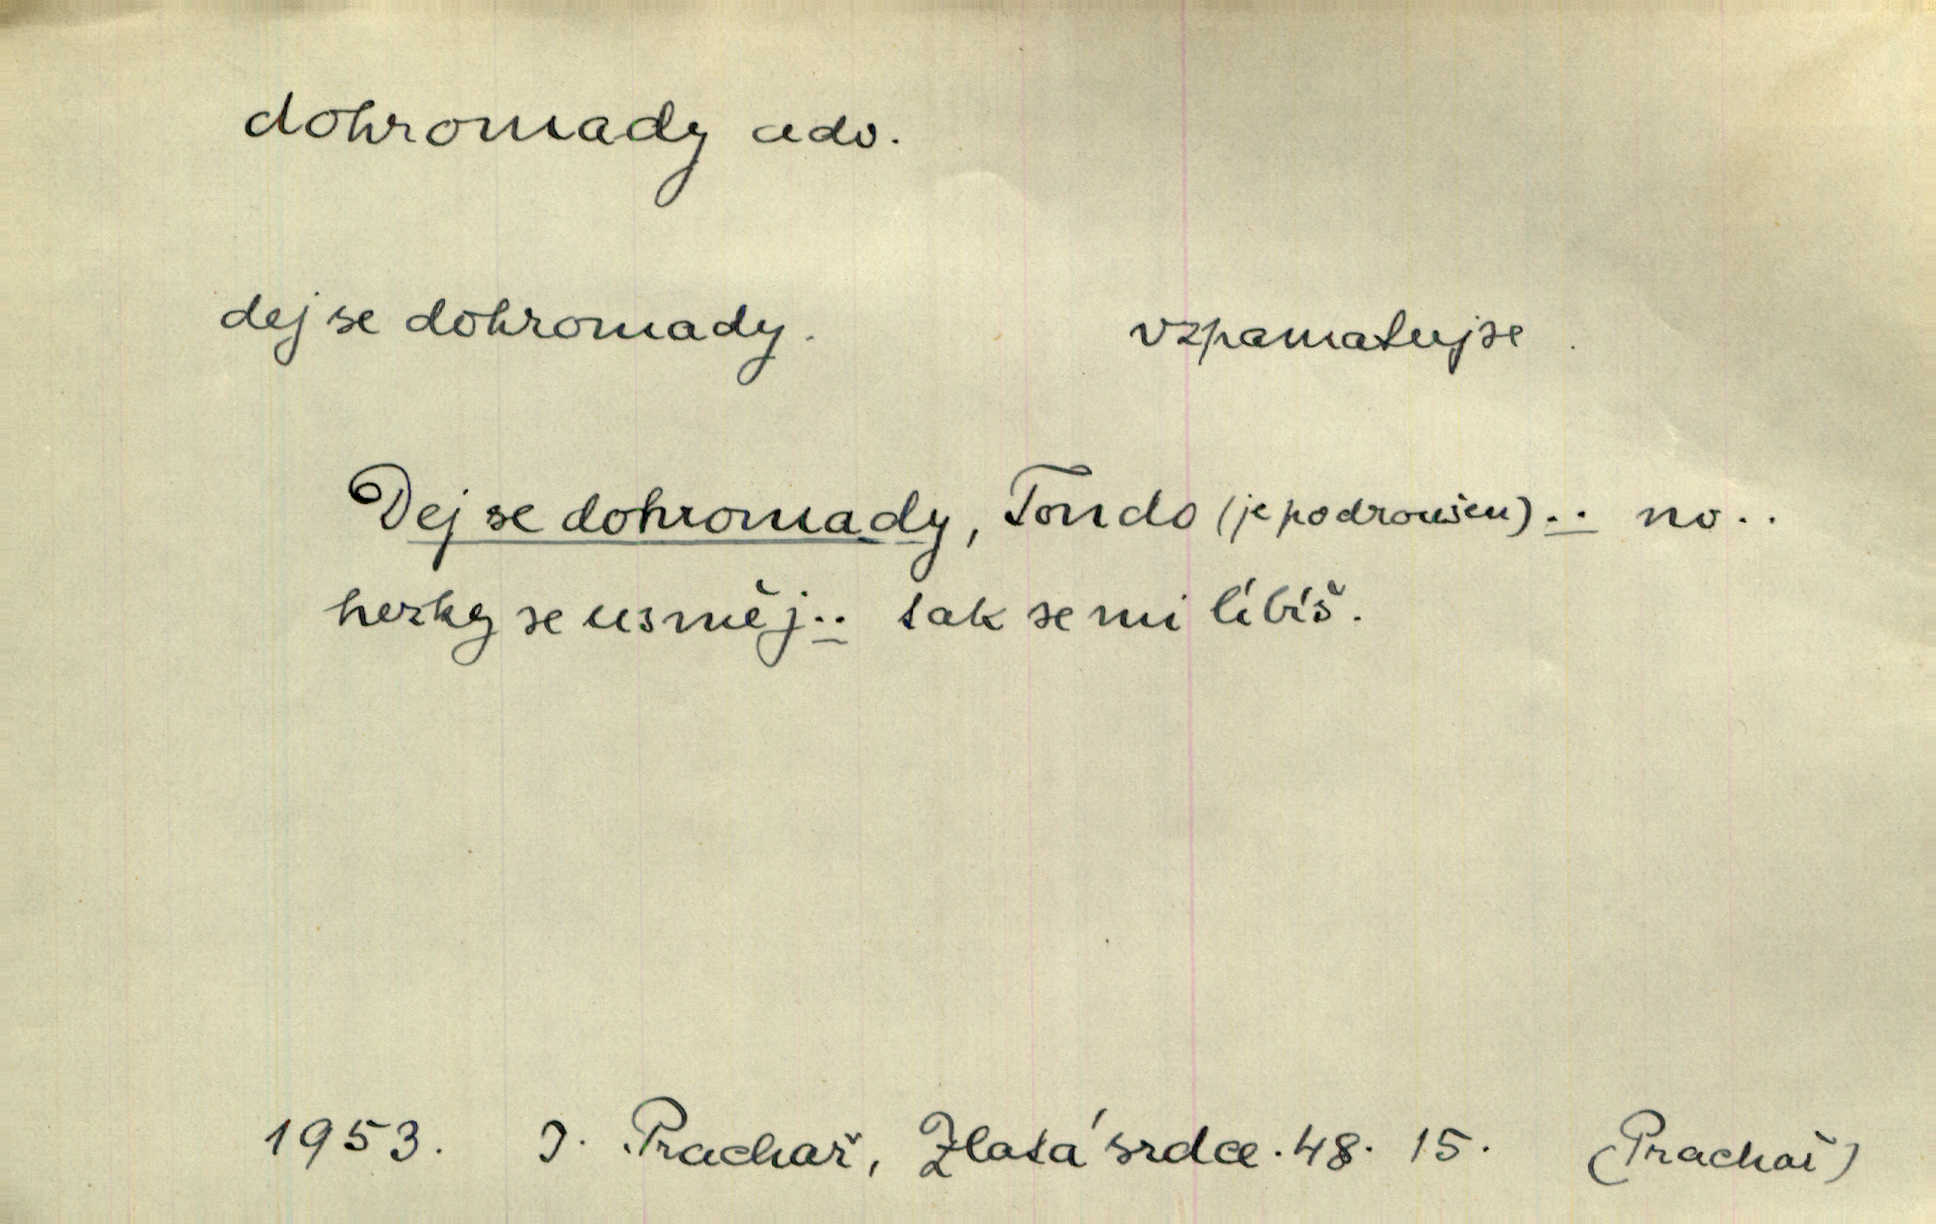 dohromady adv.
dej se dohromady. vzpamatuj se.
Dej se dohromady, Tondo (je podroušen).. no..
hezky se usměj.. tak se mi líbíš.
1953. J. Prachař, Zlatá srdce. 48. 15. (Prachař)